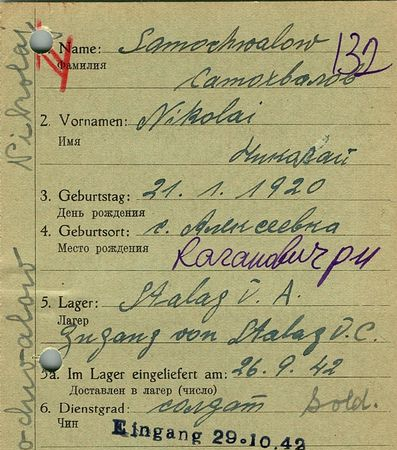 1. Name: Samochwalow 132
Фамилия Самохвалов
2. Vornamen: Nikolai
Имя Николай
3. Geburtstag: 21. 1. 1920
День рождения
4. Geburtsort: с. Алексеевка
Место рождения Каганович рн
5. Lager: Stalag V. A.
Лагер
Zugang von Stalag V. C.
5a. Im Lager eingeliefert am: 26. 9. 42
Доставлен в лагер (число)
6. Dienstgrad: солдат Sold.
Чин
Eingang 29.10.42
Nikolaj
ochwalow